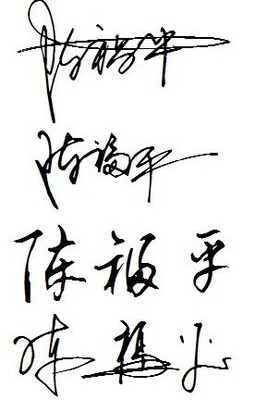 陈福平
陈福平
陈福平
陈福平